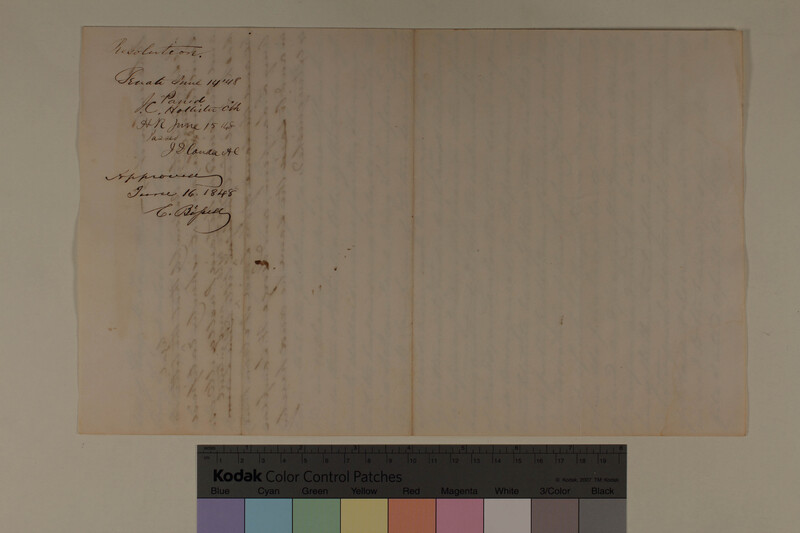 Resolution.
Senate June 14 '48
Passed
J.C. Hollister Clk
H R June 15 48
Passed
J D Candee Clk
Approved
June 16 1848
C. Bissell
Kodak Color Control Patches
© Kodak, 2007 TM: Kodak
Blue Cyan Green Yellow Red Magenta White 3/Color Black